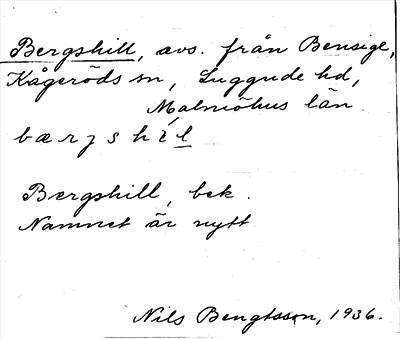 Bergshill, avs. från Bensige,
Kågeröds sn, Luggude hd,
Malmöhus län
bærʒshíl
Bergshill, bek.
Namnet är nytt
Nils Bengtsson, 1936.